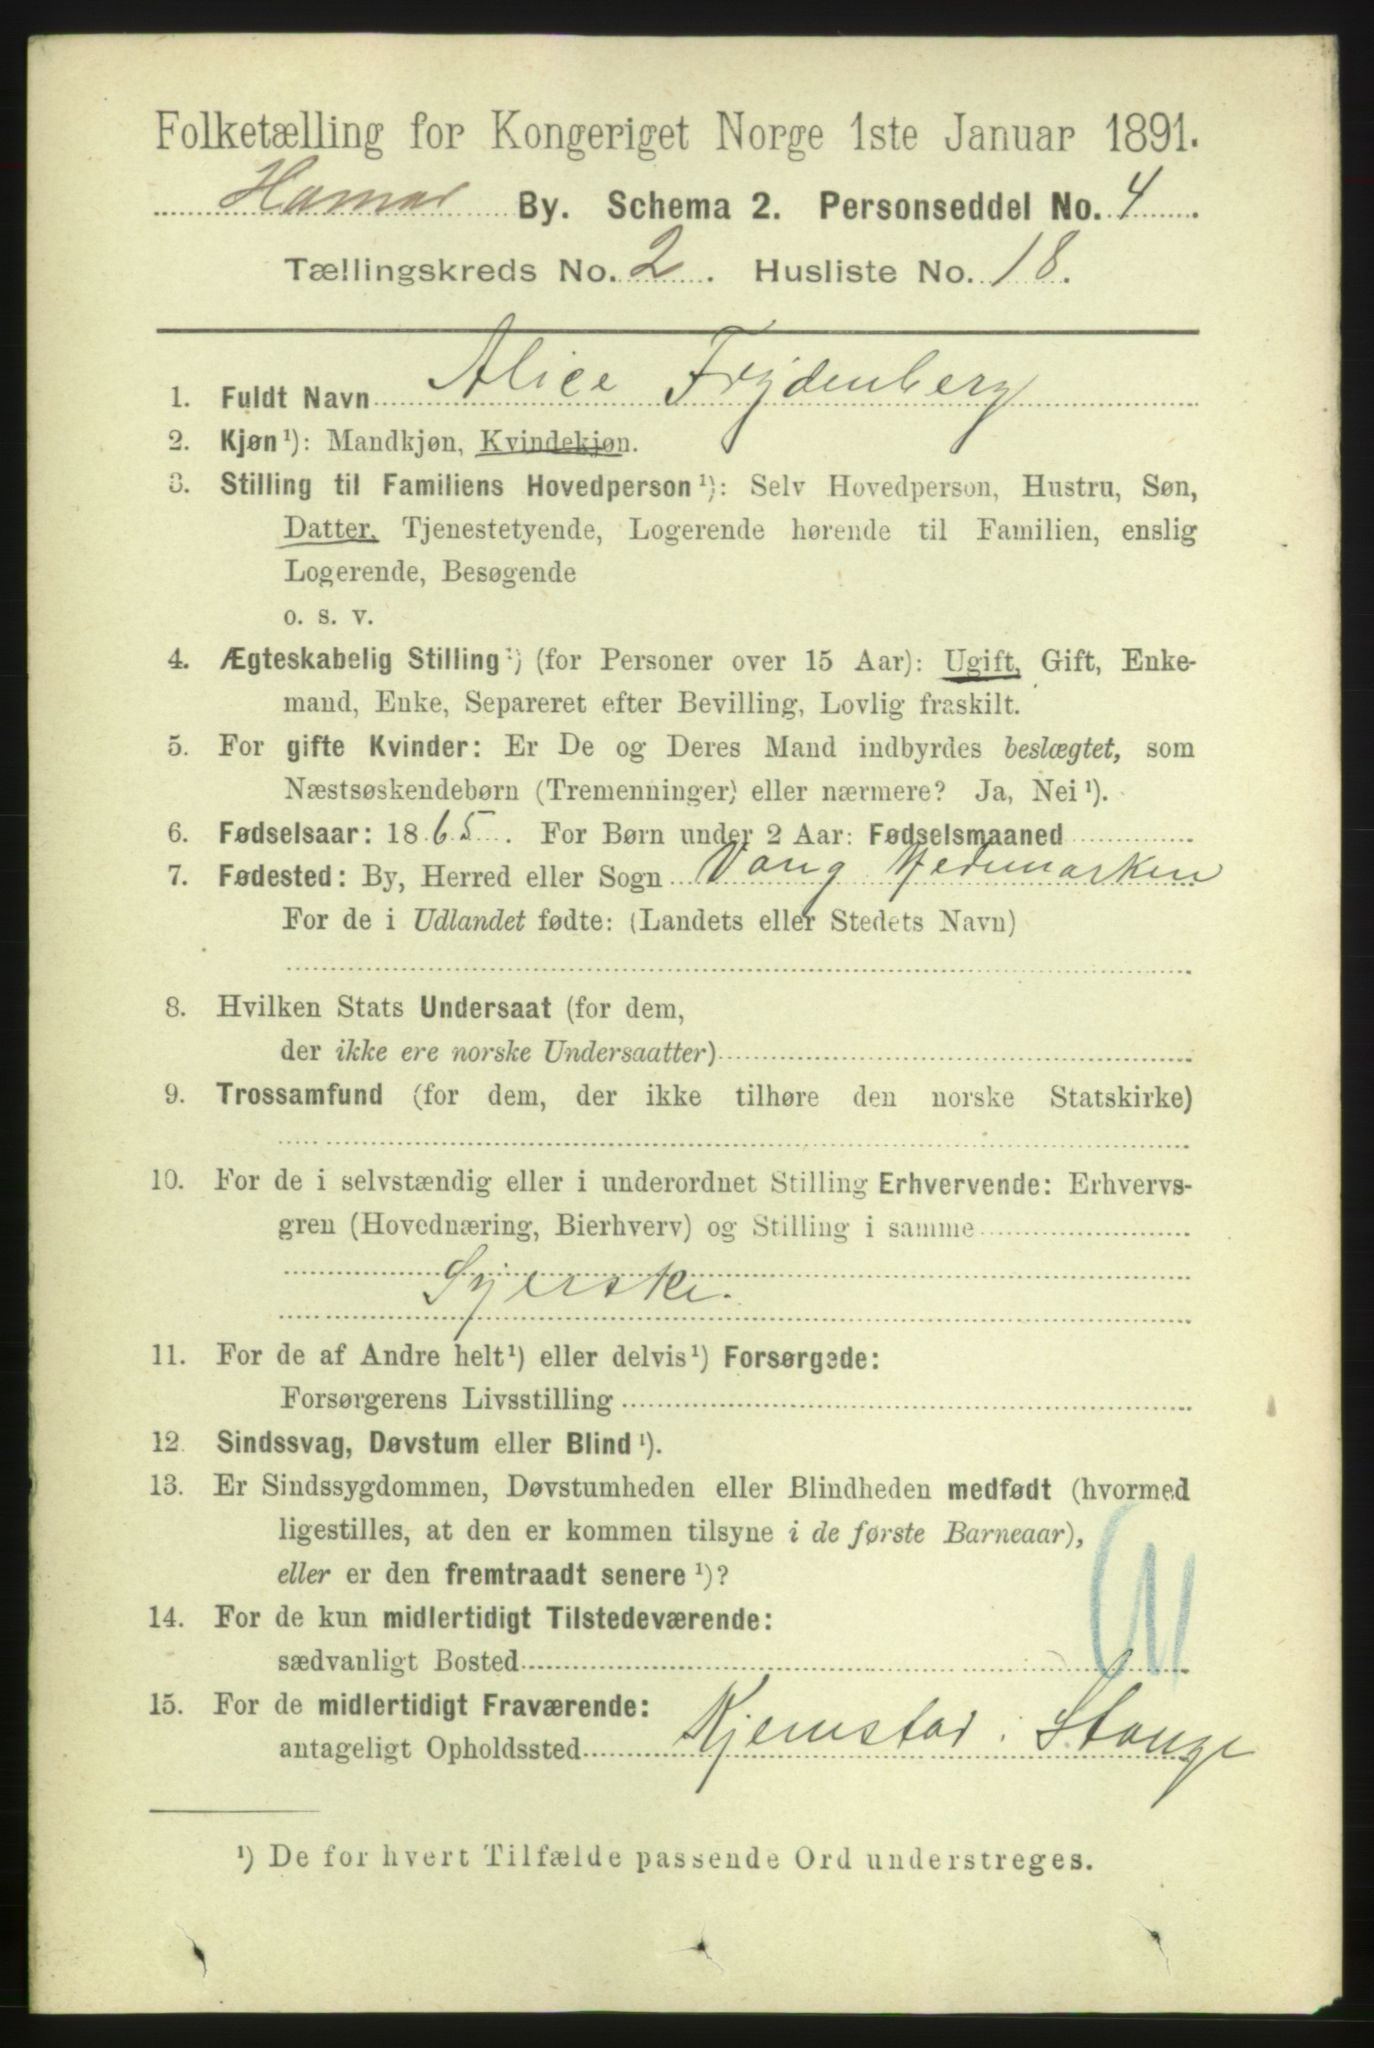 Folketælling for Kongeriget Norge 1ste Januar 1891.
Hamar By. Schema 2. Personseddel No. 4
Tællingskreds No. 2. Husliste No. 18.
1. Fuldt Navn Alice Frydenberg
2. Kjøn¹): Mandkjøn, Kvindekjøn.
3. Stilling til Familiens Hovedperson¹): Selv Hovedperson, Hustru, Søn,
Datter, Tjenestetyende, Logerende hørende til Familien, enslig
Logerende, Besøgende
o. s. v.
4. Ægteskabelig Stilling¹) (for Personer over 15 Aar): Ugift, Gift, Enke-
mand, Enke, Separeret efter Bevilling, Lovlig fraskilt.
5. For gifte Kvinder: Er De og Deres Mand indbyrdes beslægtet, som
Næstsøskendebørn (Tremenninger) eller nærmere? Ja, Nei¹).
6. Fødselsaar: 1865. For Børn under 2 Aar: Fødselsmaaned
7. Fødested: By, Herred eller Sogn Vang Hedemarken
For de i Udlandet fødte: (Landets eller Stedets Navn)
8. Hvilken Stats Undersaat (for dem,
der ikke ere norske Undersaatter)
9. Trossamfund (for dem, der ikke tilhøre den norske Statskirke)
10. For de i selvstændig eller i underordnet Stilling Erhvervende: Erhvervs-
gren (Hovednæring, Bierhverv) og Stilling i samme
Syerske.
11. For de af Andre helt¹) eller delvis¹) Forsørgede:
Forsørgerens Livsstilling
12. Sindssvag, Døvstum eller Blind¹).
13. Er Sindssygdommen, Døvstumheden eller Blindheden medfødt (hvormed
ligestilles, at den er kommen tilsyne i de første Barneaar),
eller er den fremtraadt senere¹)?
14. For de kun midlertidigt Tilstedeværende:
sædvanligt Bosted
15. For de midlertidigt Fraværende:
antageligt Opholdssted Kjemstad i Stange
¹) De for hvert Tilfælde passende Ord understreges.